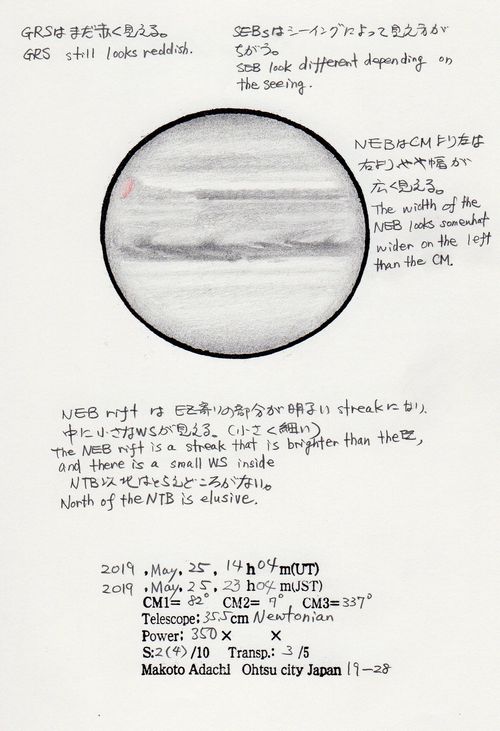 GRSはまだ赤く見える。
GRS still looks reddish.
SEBsはシーイングによって見え方が
ちがう。
SEB look different depending on
the seeing.
NEBはCMより左は
右よりやや幅が
広く見える。
The width of the
NEB looks somewhat
wider on the left
than the CM.
NEB rift は EZ寄りの部分が明るい streakになり、
中に小さなWSが見える。(小さく細い)
The NEB rift is a streak that is brighter than the EZ,
and there is a small WS inside
NTB以北はとらえどころがない。
North of the NTB is elusive.
2019 . May . 25 , 14 h 04 m(UT)
2019 . May . 25 , 23 h 04 m(JST)
CM1= 82° CM2= 9° CM3= 337°
Telescope: 35.5 cm Newtonian
Power: 350 × ×
S: 2(4) /10 Transp.: 3 /5
Makoto Adachi Ohtsu city Japan 19-28